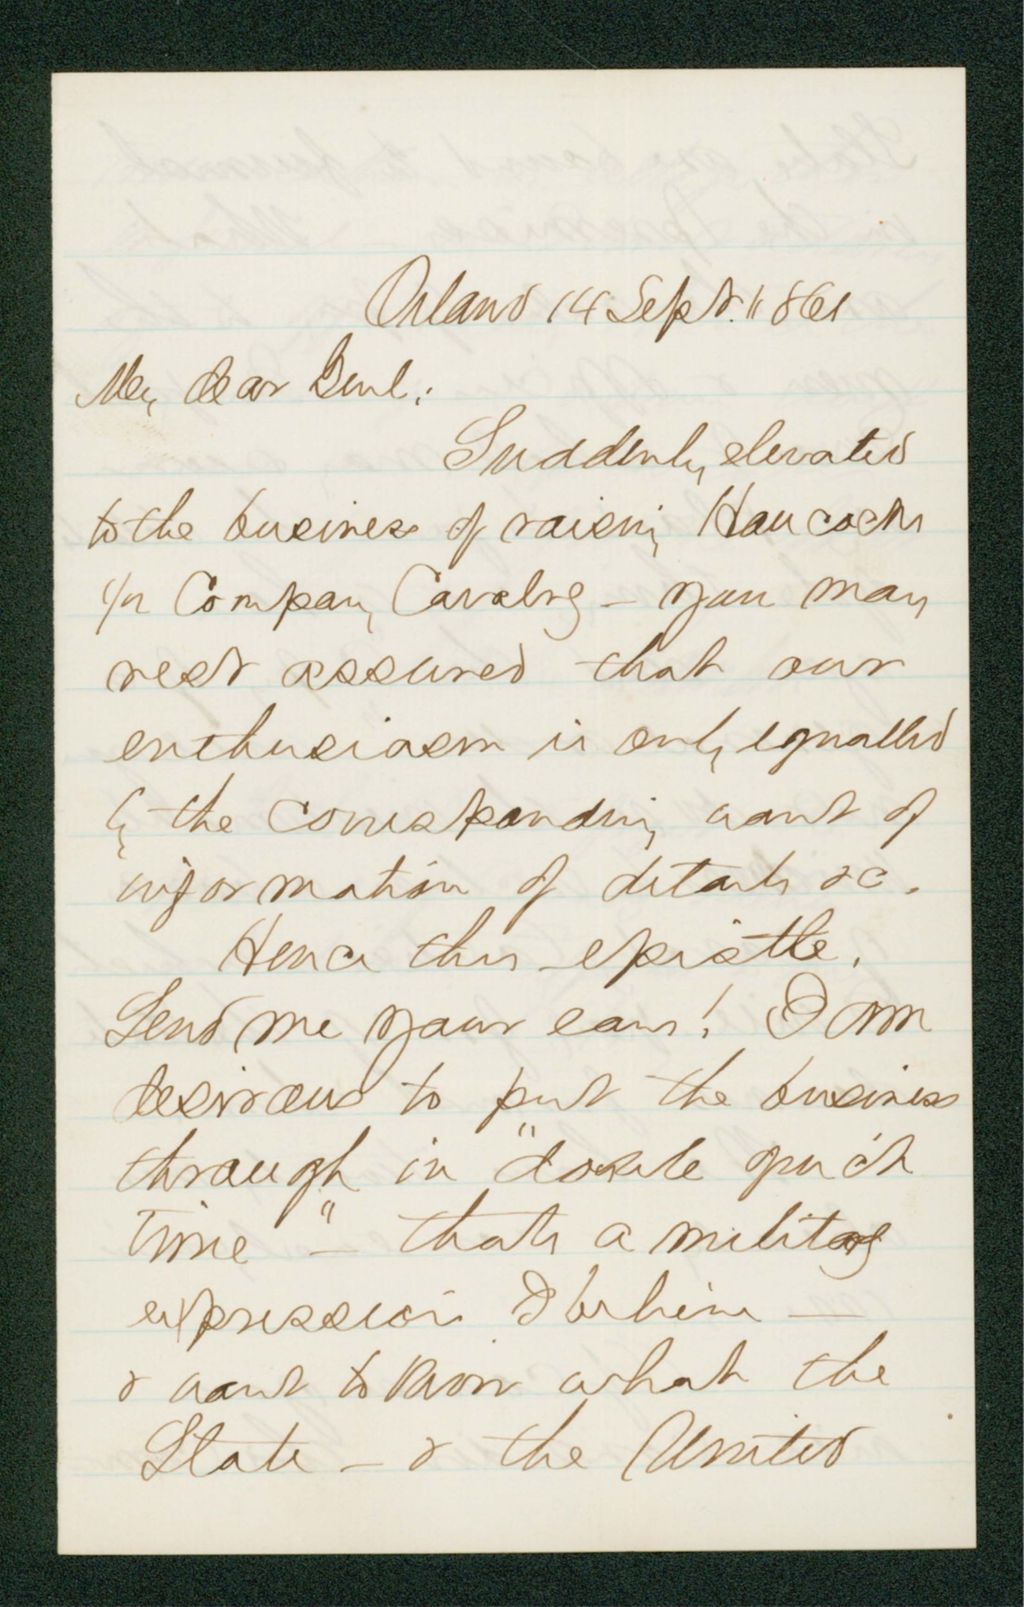 Orland 14 Sept. 1861
My dear Genl:
Suddenly elevated
to the business of raising Hancocks
1/2 Company Cavalry – you may
rest assured that our
enthusiasm is only equalled
by the corresponding want of
information of details &c.
Hence this epistle.
Lend me your ears! I am
desirous to put the business
through in "double quick
time" – thats a military
expression I believe —
& want to know what the
State – & the United